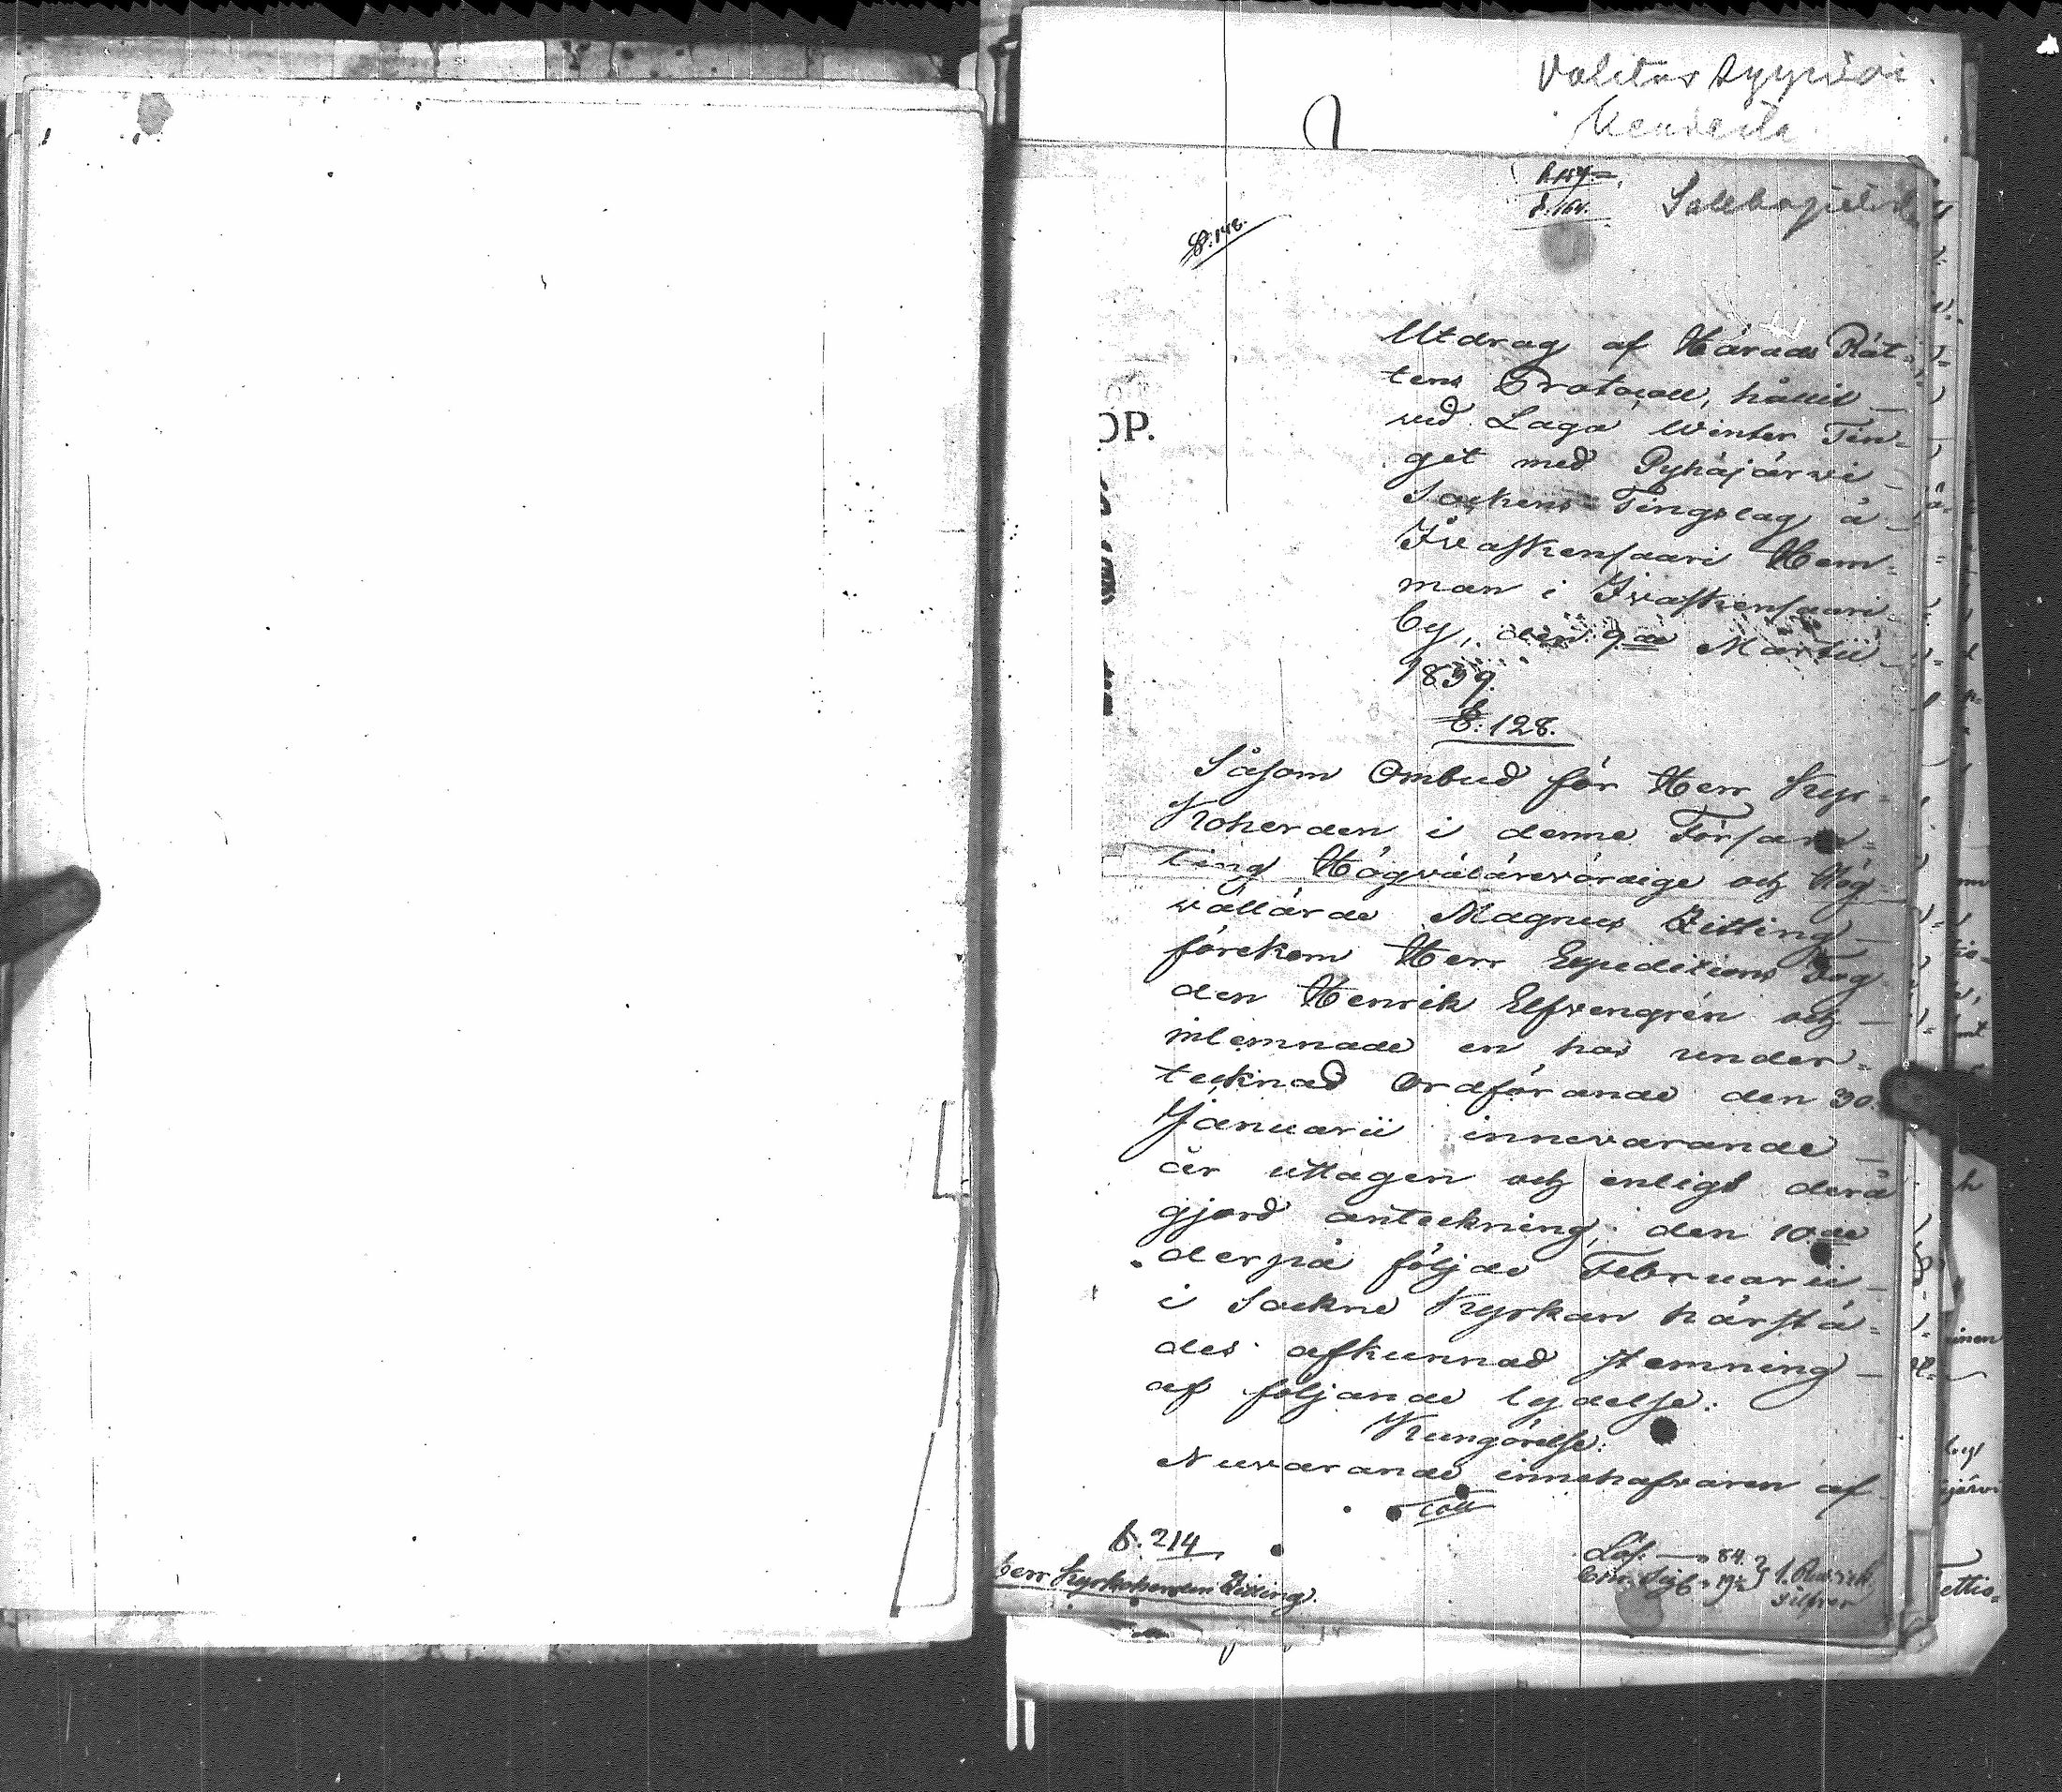 Valitus
§. 164.
§. 148.
OP.
Utdrag af Härads Rät-
tens Protocoll, hållit
vid Laga Winter Tin-
get med Pyhäjärwi
Sockens Tingslag å
Iwaskensaari Hem-
man i Iwaskensaari
by, den 9de Martii
1839.
§. 128.
Såsom Ombud för Herr Kyr-
koherden i denne Försam-
ling Högvälärevördige och Hög-
vällärde Magnus Zitting
förekom Herr Expeditions Fog-
den Henrik Elfvengrén och
inlemnade en hos under-
tecknad Ordförande den 30
Januarii innevarande
år uttagen och enligt derå
gjord anteckning, den 10de
derpå följde Februarii
i Sockne Kyrkan härstä-
des afkunnad stemning
af följande lydelse:
Kungörelse:
Nuvarande innehafvaren af
§. 214
Herr Kyrkoherden Zitting.
Lös. 84.
Silfver